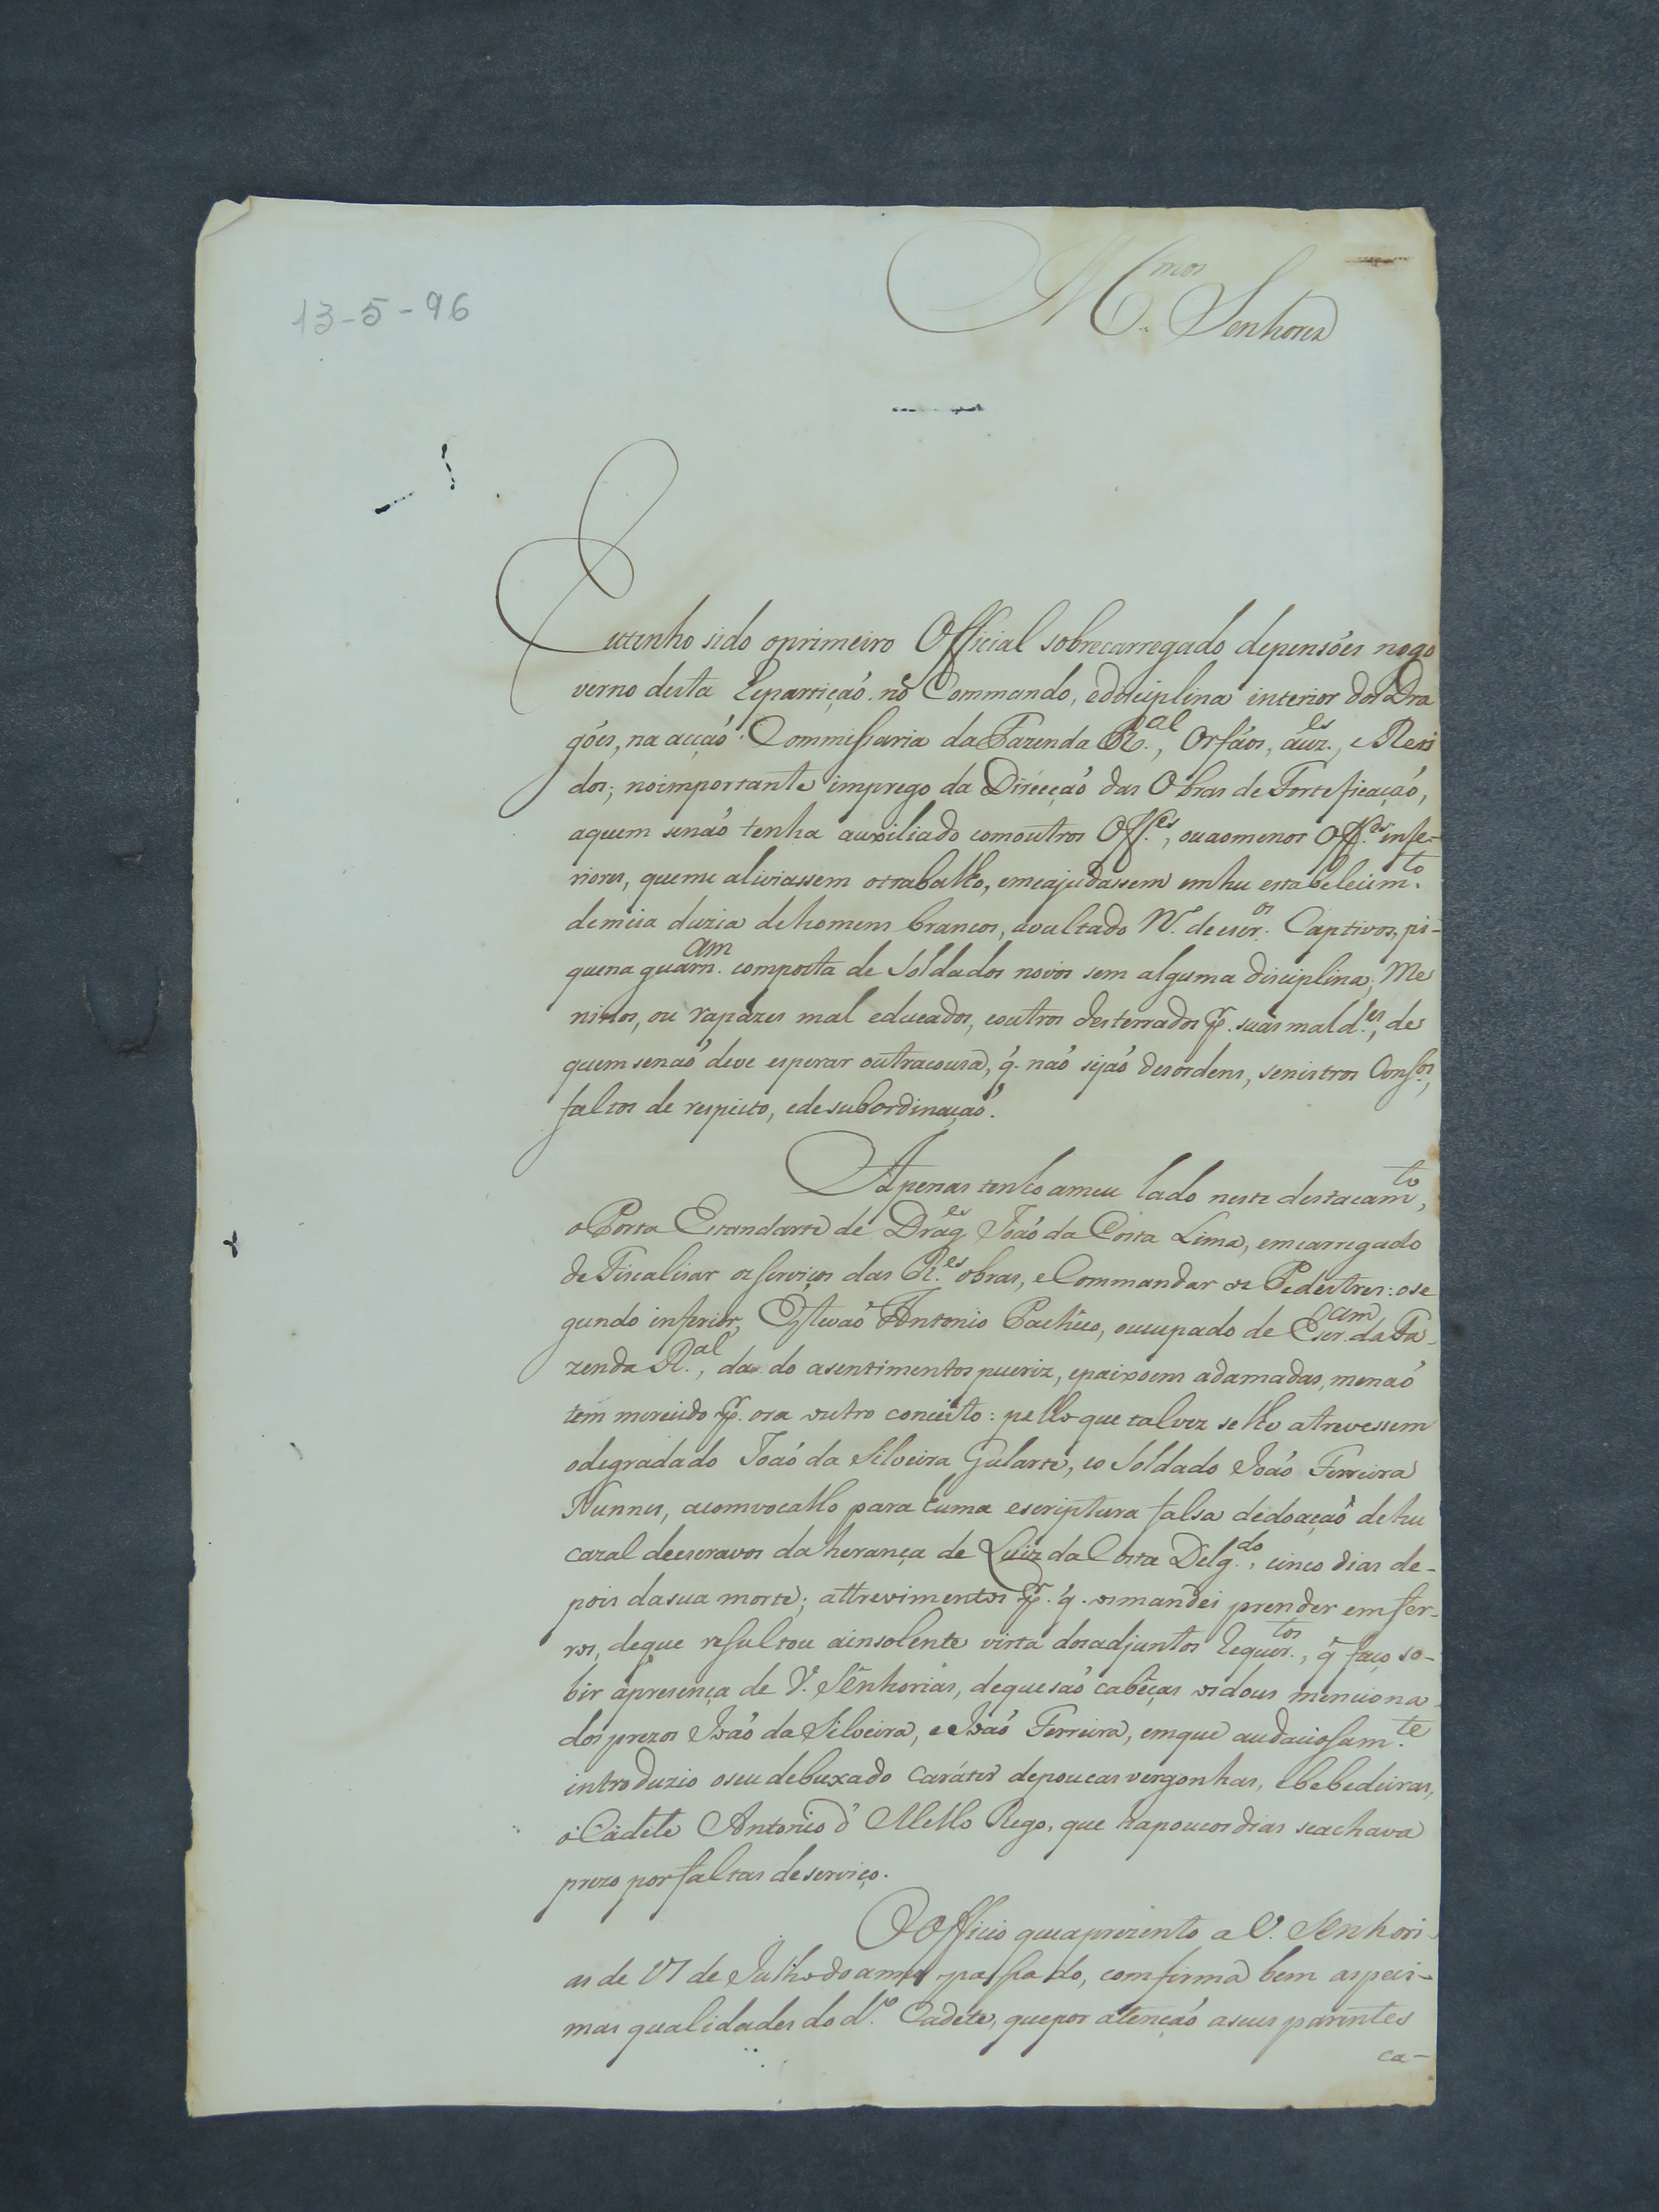 13-5-96
Senhores
Eutenho sido oprimeiro Official sobrecarregado depensões nogo
verno desta Repartiçaõ. no Commando, edisciplina interior dos Dra
gões, na acçaõ Commissaria da Fazenda R.al, Orfãos, auz.es, e Rezi
dos; noimportante imprego da Direcçaõ das Obras de Forteficaçaõ,
aquem senaõ tenha auxiliado comoutros Off.es, ouaomenos Off.es infe-
riores, queme aliviassem otrabalho, emeajudassem emhu estabelecim.to
demeia duzia dehomens brancos, avultado N.º de escr.os Captivos, pi-
quena guarn.am composta de Soldados novos sem alguma disciplina; Me
ninos, ou rapazes mal educados, eoutros desterrados p.r suas mald.es, de
quem senaõ deve esperar outracousa, q̃. naõ sejaõ desordens, senistros Cons.os,
faltos de respeito, edesubordinaçaõ.
Apenas tenho ameu lado neste destacam.to,
o Porta Estandarte de Drag.es Joaõ da Costa Lima, emcarregado
de Fiscalisar os serviços das R.es obras, eCommandar os Pedestres: ose
gundo inferior, Estevaõ Antonio Pacheco, oucupado de Escr.am da Fa-
zenda R.al, dado asentimentos pueriz, epaixoens adamadas, menaõ
tem merecido p.r ora outro conceito: pello que talvez selhe atrevessem
odegradado Joaõ da Silveira Gularte, eo Soldado Joaõ Ferreira
Nunnes, aconvocallo para huma escriptura falsa dedoaçaõ dehu
cazal deescravos da herança de Luiz da Costa Delg.do, cinco dias de-
pois dasua morte; attrevimentos p.r q̃. osmandei prender emfer-
ros, deque resultou ainsolente vista dosadjuntos Requer.tos, q̃ faço so-
bir ápresença de V. Senhorias, dequesaõ cabeças osdous menciona
dos prezos Joaõ da Silveira, e Joaõ Ferreira, emque audaciosam.te
introduzio oseu debuxado caráter depoucas vergonhas, ebebedeiras,
o Cadete Antonio d' Mello Rego, que hapoucos dias seachava
prezo por faltas de serviço.
O Officio queaprezento a V. Senhori-
as de 17 de Julho do anno passado, comfirma bem aspeci-
mas qualidades do d.º Cadete, quepor atençaõ aseus parentes
ca-